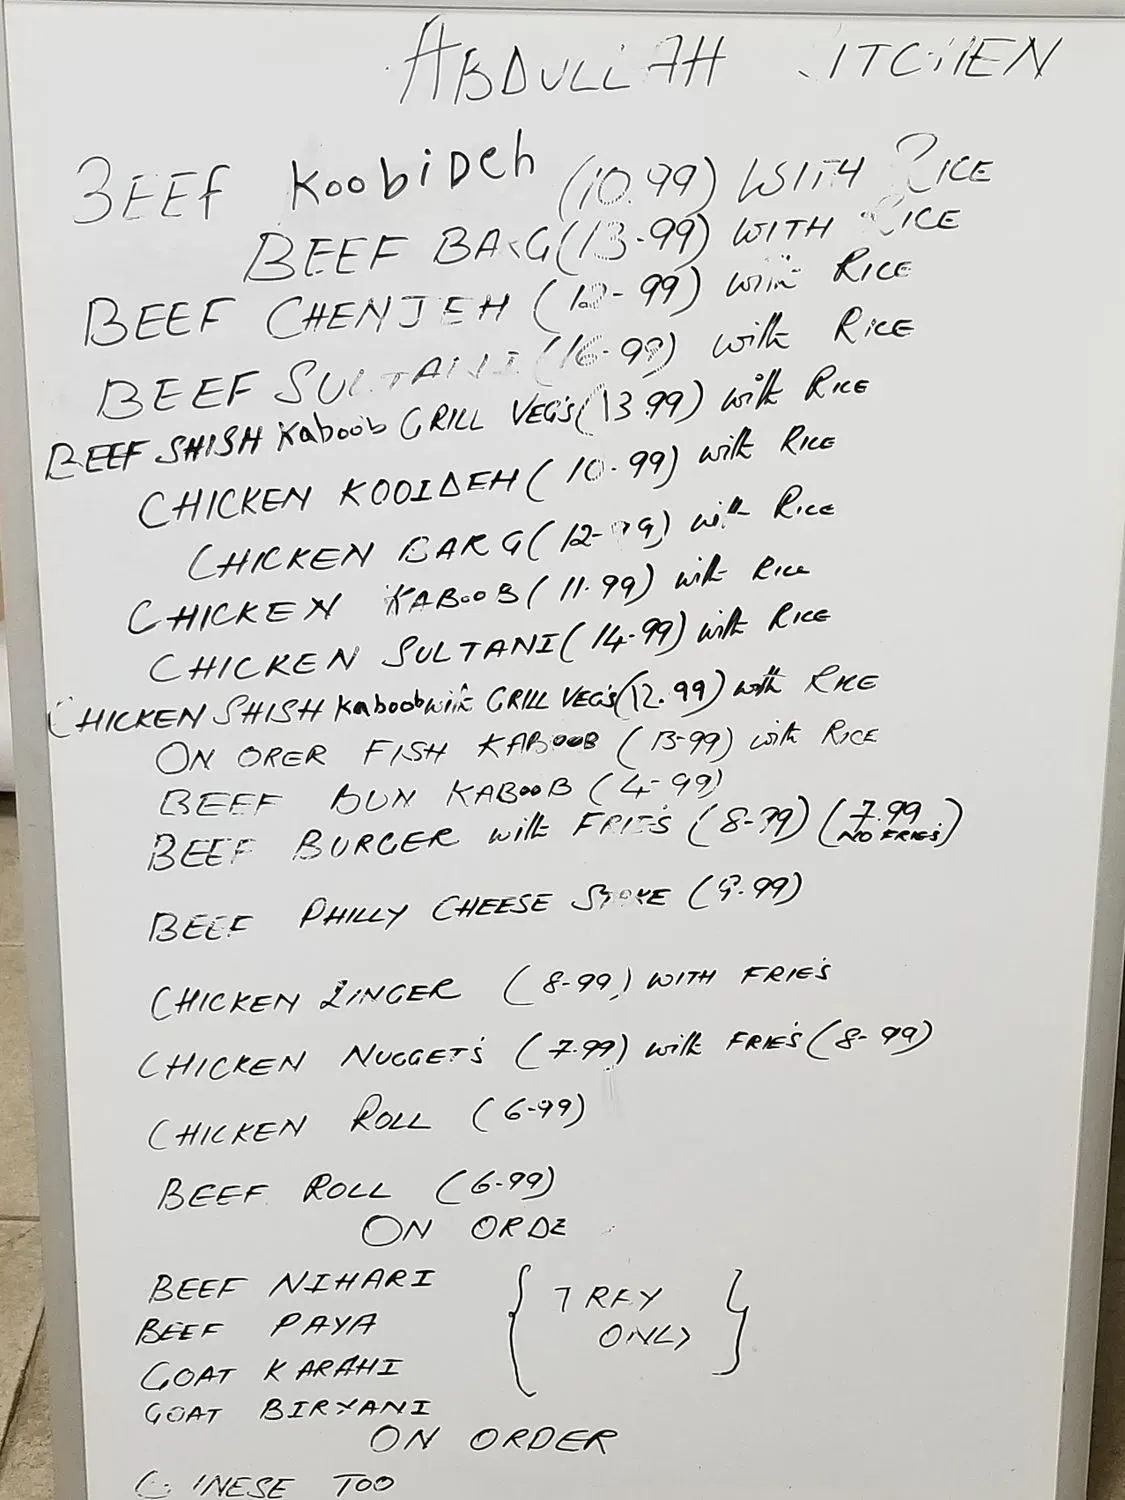 ABDULLAH KITCHEN
BEEF KoobiDeh (10.99) WITH RICE
BEEF BARG (13-99) WITH RICE
BEEF CHENJEH (12-99) with RICE
BEEF SULTANI (16-99) with RICE
BEEF SHISH Kaboob GRILL VEG'S (13.99) with RICE
CHICKEN KOOIDEH (10-99) with RICE
CHICKEN BARG (12-99) with RICE
CHICKEN KABOOB (11.99) with RICE
CHICKEN SULTANI (14-99) with RICE
CHICKEN SHISH Kaboob with GRILL VEG'S (12.99) with RICE
ON ORER FISH KABOOB (13-99) with RICE
BEEF BUN KABOOB (4-99)
BEEF BURGER with FRIE'S (8-99) (7.99 NO FRIE'S)
BEEF PHILLY CHEESE (9-99)
CHICKEN ZINGER (8-99) WITH FRIE'S
CHICKEN NUGGET'S (7.99) with FRIE'S (8-99)
CHICKEN ROLL (6-99)
BEEF ROLL (6-99)
ON ORDE
BEEF NIHARI
BEEF PAYA
GOAT KARAHI
GOAT BIRYANI
{ TREY ONLY }
ON ORDER
CHINESE TOO